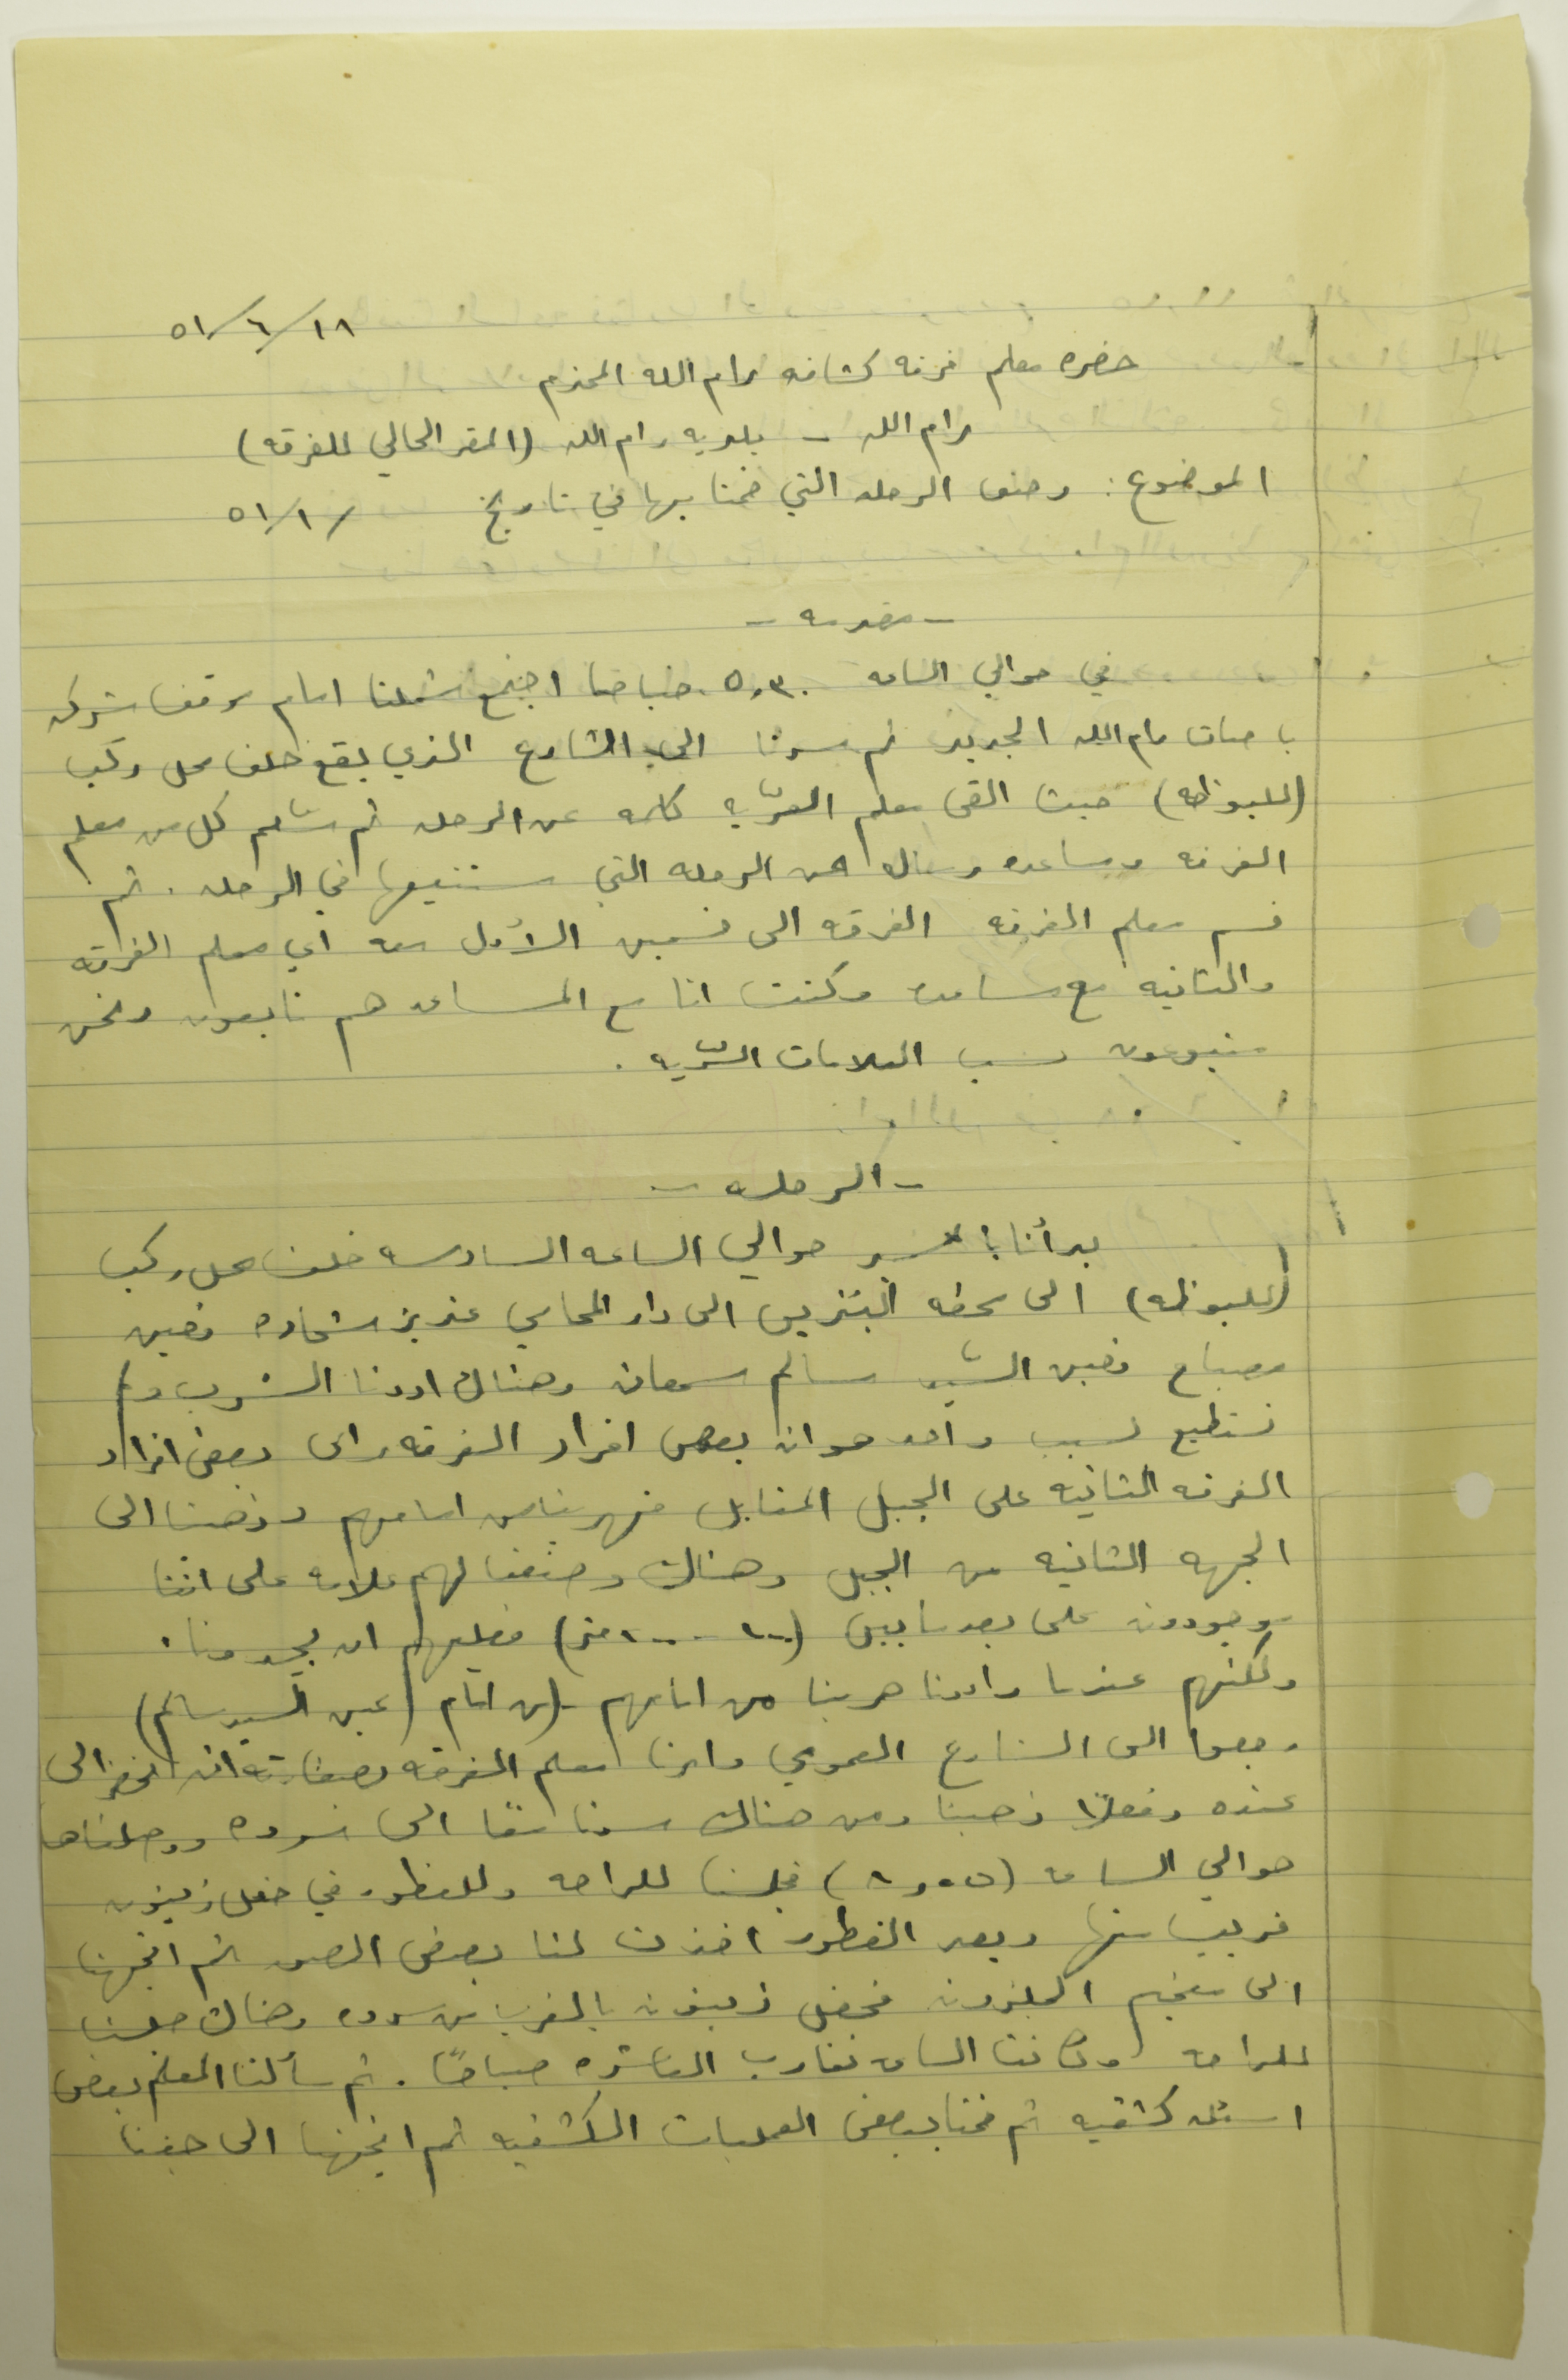 ٥١/٦/١٨
حضره معلم فرقه كشافه رام الله المحترم
رام الله - بلديه رام الله (المقر الحالي للفرقه)
الموضوع: وصف الرحله التي قمنا بها في تاريخ / ٥١/١
- مقدمه -
في حوالي الساعه ٥،٣٠ صباحا اجتمع شملنا امام موقف شركه
باصات رام الله الجديد ثم سرنا الى الشارع الذي يقع خلف محل ركب
(للبوظه) حيث القى معلم الفرقه كلمه عن الرحله ثم كل من معلم
الفرقه ومساعده عن الرحله التي سنتبعها في الرحله. ثم
قسم معلم الفرقه الفرقه الى قسمين الأول معه اي معلم الفرقه
والثانيه مع مساعده وكنت انا مع المساعد هم تابعون ونحن
متبوعون حسب العلامات السريه.
- الرحله -
بدأنا بالسير حوالي الساعه السادسه خلف محل ركب
(للبوظه) الى محطه البنزين الى دار المحامي عزيز شحاده فعين
مصباح فعين السيد سالم سمعان وهناك اردنا الشرب ولم
نستطيع لسبب واحد هو ان بعض افراد الفرقه راى بعض افراد
الفرقه الثانيه على الجبل المقابل فهربنا من امامهم وذهبنا الى
الجهه الثانيه من الجبل وهناك وضعنا لهم علامه على اننا
موجودون على بعد ما بين (١٠٠ - ٢٠٠ متر) فعليهم ان يجدونا.
ولكنهم عندما رادونا هربنا من امامهم (من امام عين السيد سالم)
رجعوا الى الشارع العمومي وامرنا معلم الفرقه بصفارته ان نحضر الى
عنده وفعلاً ذهبنا ومن هناك سرنا معًا الى سرده ووصلناها
حوالي الساعه فجلسنا للراحه وللفطور في حقل زيتون
قريب منها وبعد الفطور اخذت لنا بعض الصور ثم اتجهنا
الى مخيم الجلزون فحقل زيتون بالقرب من سرده وهناك جلسنا
للراحه وكانت الساعه تقارب العاشره صباحًا. ثم سألنا المعلم بعض
اسئله كشفيه ثم قمنا ببعض العمليات الكشفيه ثم اتجهنا الى جفنا